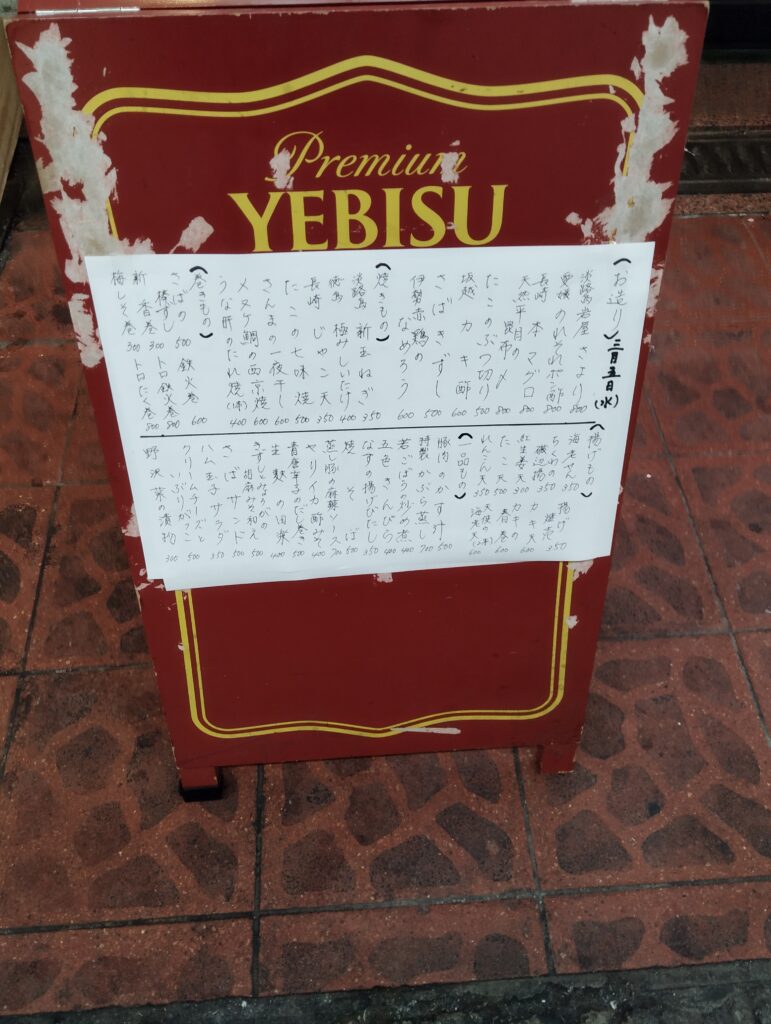 Premium
YEBISU
(お造り) 三月五日(水)
淡路島岩屋 さより 800
愛媛 のれそれポン酢 800
長崎 本マグロ 800
天然平目の昆布〆 800
たこのぶつ切り 500
坂越 カキ酢 600
さばきずし 500
伊勢赤鶏のなめろう 600
(焼きもの)
淡路島 新玉ねぎ 350
徳島 極みしいたけ 400
長崎 じゃこ天 350
たこの七味焼 500
さんまの一夜干し 600
メヌケ鯛の西京焼 600
うな肝のたれ焼(1本) 400
(巻きもの)
さばの棒ずし 500
新香巻 300
梅しそ巻 300
鉄火巻 600
トロ鉄火巻 800
トロたく巻 800
(揚げもの)
海老せん 350
ちくわの磯辺揚 350
紅生姜天 300
たこ天 500
れんこん天 350
揚げ焼売 350
カキ天 600
カキの春巻 600
天使の海老天(2本) 600
(一品もの)
豚肉のかす汁 500
特製かぶら蒸し 700
若ごぼうの炒め煮 400
五色きんぴら 400
なすの揚げびたし 350
焼そば 500
蒸し豚の麻辣ソース 700
ヤリイカ酢みそ 400
青唐辛子のだし巻き 500
生麩の田楽 400
きずしとみょうがの胡麻みそ和え 500
さばサンド 500
ハム玉子サラダ 350
クリームチーズといぶりがっこ 500
野沢菜の漬物 300